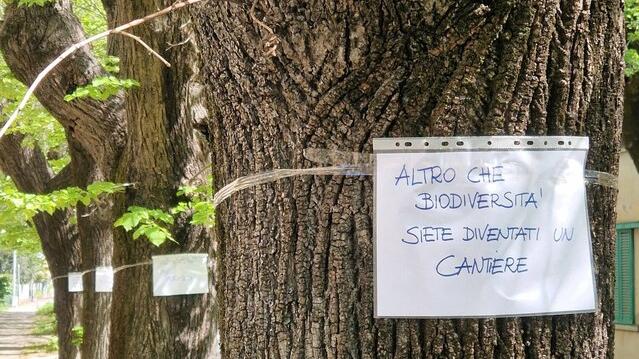 ALTRO CHE
BIODIVERSITA'
SIETE DIVENTATI UN
CANTIERE